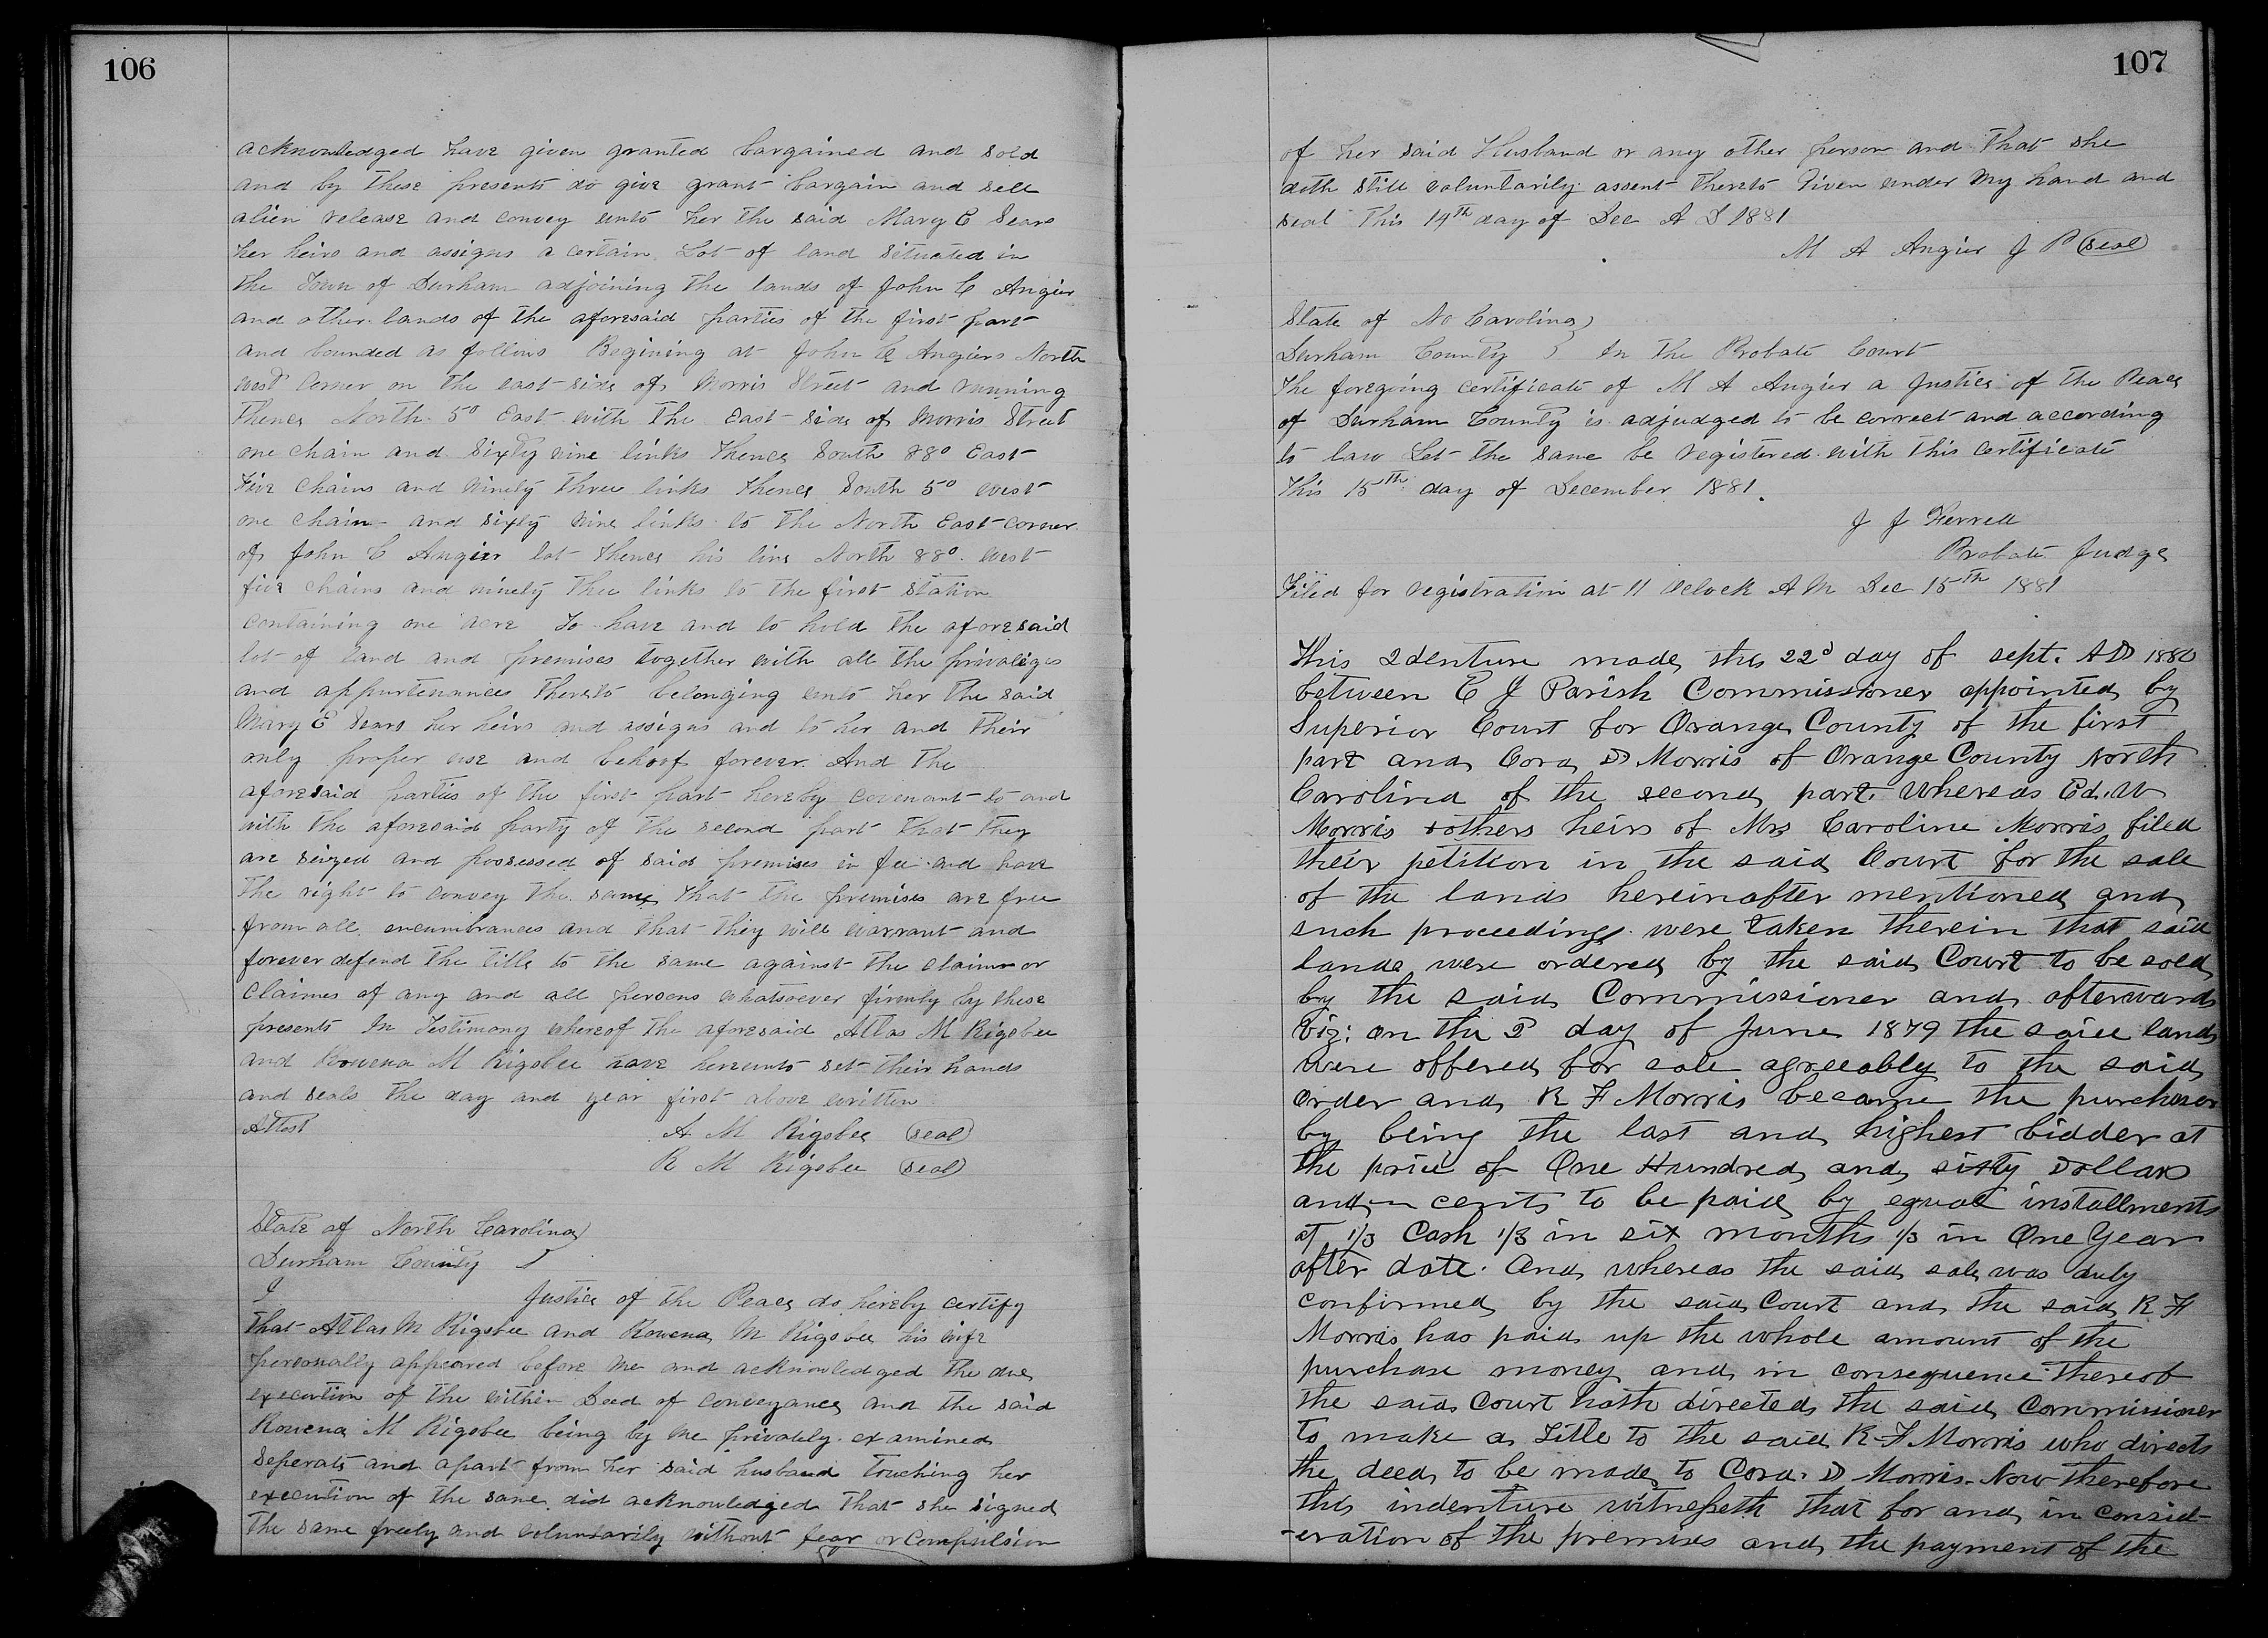 106
acknowledged have given granted bargained and sold
and by these presents do give grant bargain and sell
alien release and convey unto her the said Mary E Sears
her heirs and assigns a certain Lot of land situated in
the Town of Durham adjoining the lands of John C Angier
and other lands of the aforesaid parties of the first part
and bounded as follows Begining at John C Angiers North
west Corner on the east side of Morris Street and running
thence North 5° East with the East side of Morris Street
one chain and sixty nine links thence South 88° East
Five chains and ninety three links thence South 5° west
one chain and sixty nine links to the North East corner
of John C Angier lot thence his line North 88° west
five chains and ninety thee links to the first station
containing one acre To have and to hold the aforesaid
lot of land and premises together with all the privaliges
and appurtenances thereto belonging unto her the said
Mary E Sears her heirs and assigns and to her and their
only proper use and behoof forever. And the
aforesaid parties of the first part hereby covenant to and
with the aforesaid party of the second part that they
are seized and possessed of said premises in fee and have
the right to convey the same that the premises are free
from all encumbrances and that they will warrant and
forever defend the title to the same against the claim or
claimes of any and all persons whatsoever firmly by these
presents In Testimony whereof the aforesaid Atlas M Rigsbee
and Rowena M Rigsbee have hereunto set their hands
and seals the day and year first above written
Attest A M Rigsbee (seal)
R M Rigsbee (seal)
State of North Carolina)
Durham County
I Justice of the Peace do hereby certify
that Atlas M Rigsbee and Rowena M Rigsbee his wife
personally appeared before me and acknowledged the due
execution of the within Deed of conveyance and the said
Rowena M Rigsbee being by me privately examined
seperate and apart from her said husband touching her
execution of the same did acknowledged that she signed
the same freely and voluntarily without fear or compulsion
107
of her said Husband or any other person and that she
doth still voluntarily assent thereto Given under my hand and
seal this 14th day of Dec A D 1881
M A Angier J P (seal)
State of No Carolina)
Durham County } In the Probate Court
The foregoing certificate of M A Angier a Justice of the Peace
of Durham County is adjudged to be correct and according
to law Let the same be registered with this certificate
this 15th day of December 1881.
J J Ferrell
Probate Judge
Filed for registration at 11 Oclock A M Dec 15th 1881
This Identure made this 22d day of sept. AD 1880
between C J Parish Commissioner appointed by
Superior Court for Orange County of the first
part and Cora D Morris of Orange County North
Carolina of the second part. Whereas Ed. W
Morris & others heirs of Mrs Caroline Morris filed
their petition in the said Court for the sale
of the lands hereinafter mentioned and
such proceedings were taken therein that said
lands were ordered by the said Court to be sold
by the said Commissioner and afterwards
viz: on the 2 day of June 1879 the said land
were offered for sale agreeably to the said
order and R F Morris became the purchaser
by being the last and highest bidder at
the price of One Hundred and sixty Dollars
and — cents to be paid by equal installments
at 1/3 Cash 1/3 in six months 1/3 in One Year
after date. And whereas the said sale was duly
confirmed by the said Court and the said R F
Morris has paid up the whole amount of the
purchase money and in consequence thereof
the said Court hath directed the said Commissioner
to make a Title to the said R F Morris who directs
the deed to be made to Cora. D Morris. Now therefore
this indenture witnesseth that for and in consid-
-eration of the premises and the payment of the